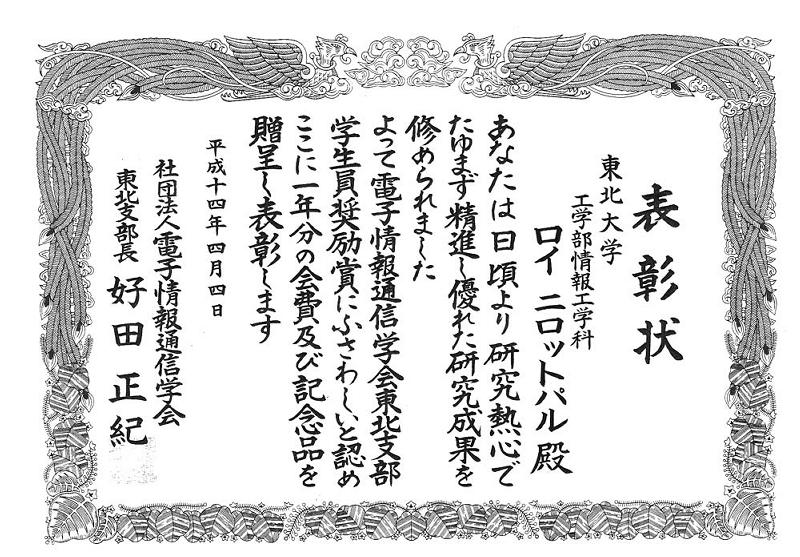 表彰状
東北大学
工学部情報工学科
ロイ ニロットパル 殿
あなたは日頃より研究熱心で
たゆまず精進し優れた研究成果を
修められました
よって電子情報通信学会東北支部
学生員奨励賞にふさわしいと認め
ここに一年分の会費及び記念品を
贈呈し表彰します
平成十四年四月四日
社団法人電子情報通信学会
東北支部長 好田正紀